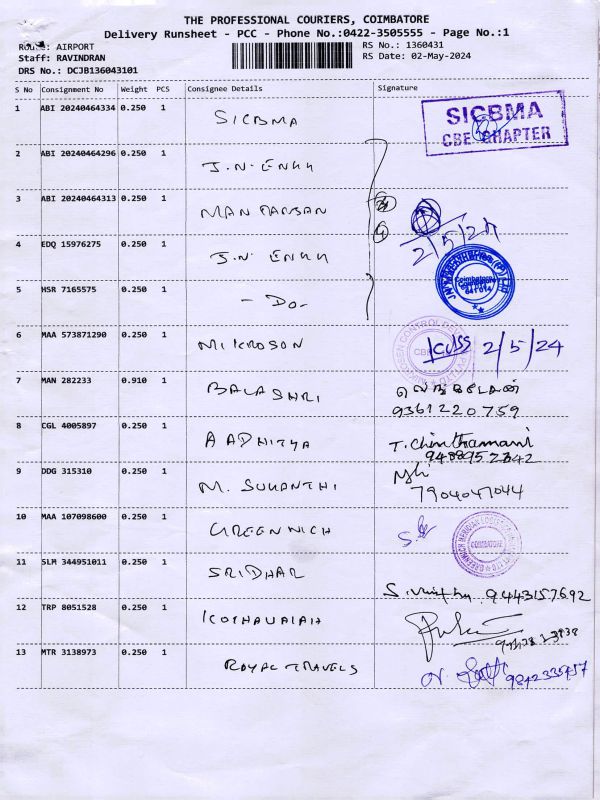 THE PROFESSIONAL COURIERS, COIMBATORE
Delivery Runsheet - PCC - Phone No.:0422-3505555 - Page No.:1
Route: AIRPORT RS No.: 1360431
Staff: RAVINDRAN RS Date: 02-May-2024
DRS No.: DCJB136043101
S No Consignment No Weight PCS Consignee Details Signature
1 ABI 20240464334 0.250 1 SICBMA
SICBMA
CBE CHAPTER
2 ABI 20240464296 0.250 1 J.N. ENGG
3 ABI 20240464313 0.250 1 MAN
4 EDQ 15976275 0.250 1 J.N. ENGG
2/5/24
5 HSR 7165575 0.250 1 - Do -
Coimbatore
641014
6 MAA 573871290 0.250 1 MIKROSON
2/5/24
7 MAN 282233 0.910 1 BALASHRI
9361220759
8 CGL 4005897 0.250 1 AADHITYA T. Chinthamani
9488952342
9 DDG 315310 0.250 1 M. SUKANTHI
7904047044
10 MAA 107098600 0.250 1 GREENWICH
COIMBATORE
11 SLM 344951011 0.250 1 SRIDHAR
9443157692
12 TRP 8051528 0.250 1 KOTHAVALAH
13 MTR 3138973 0.250 1 ROYAL TRAVELS